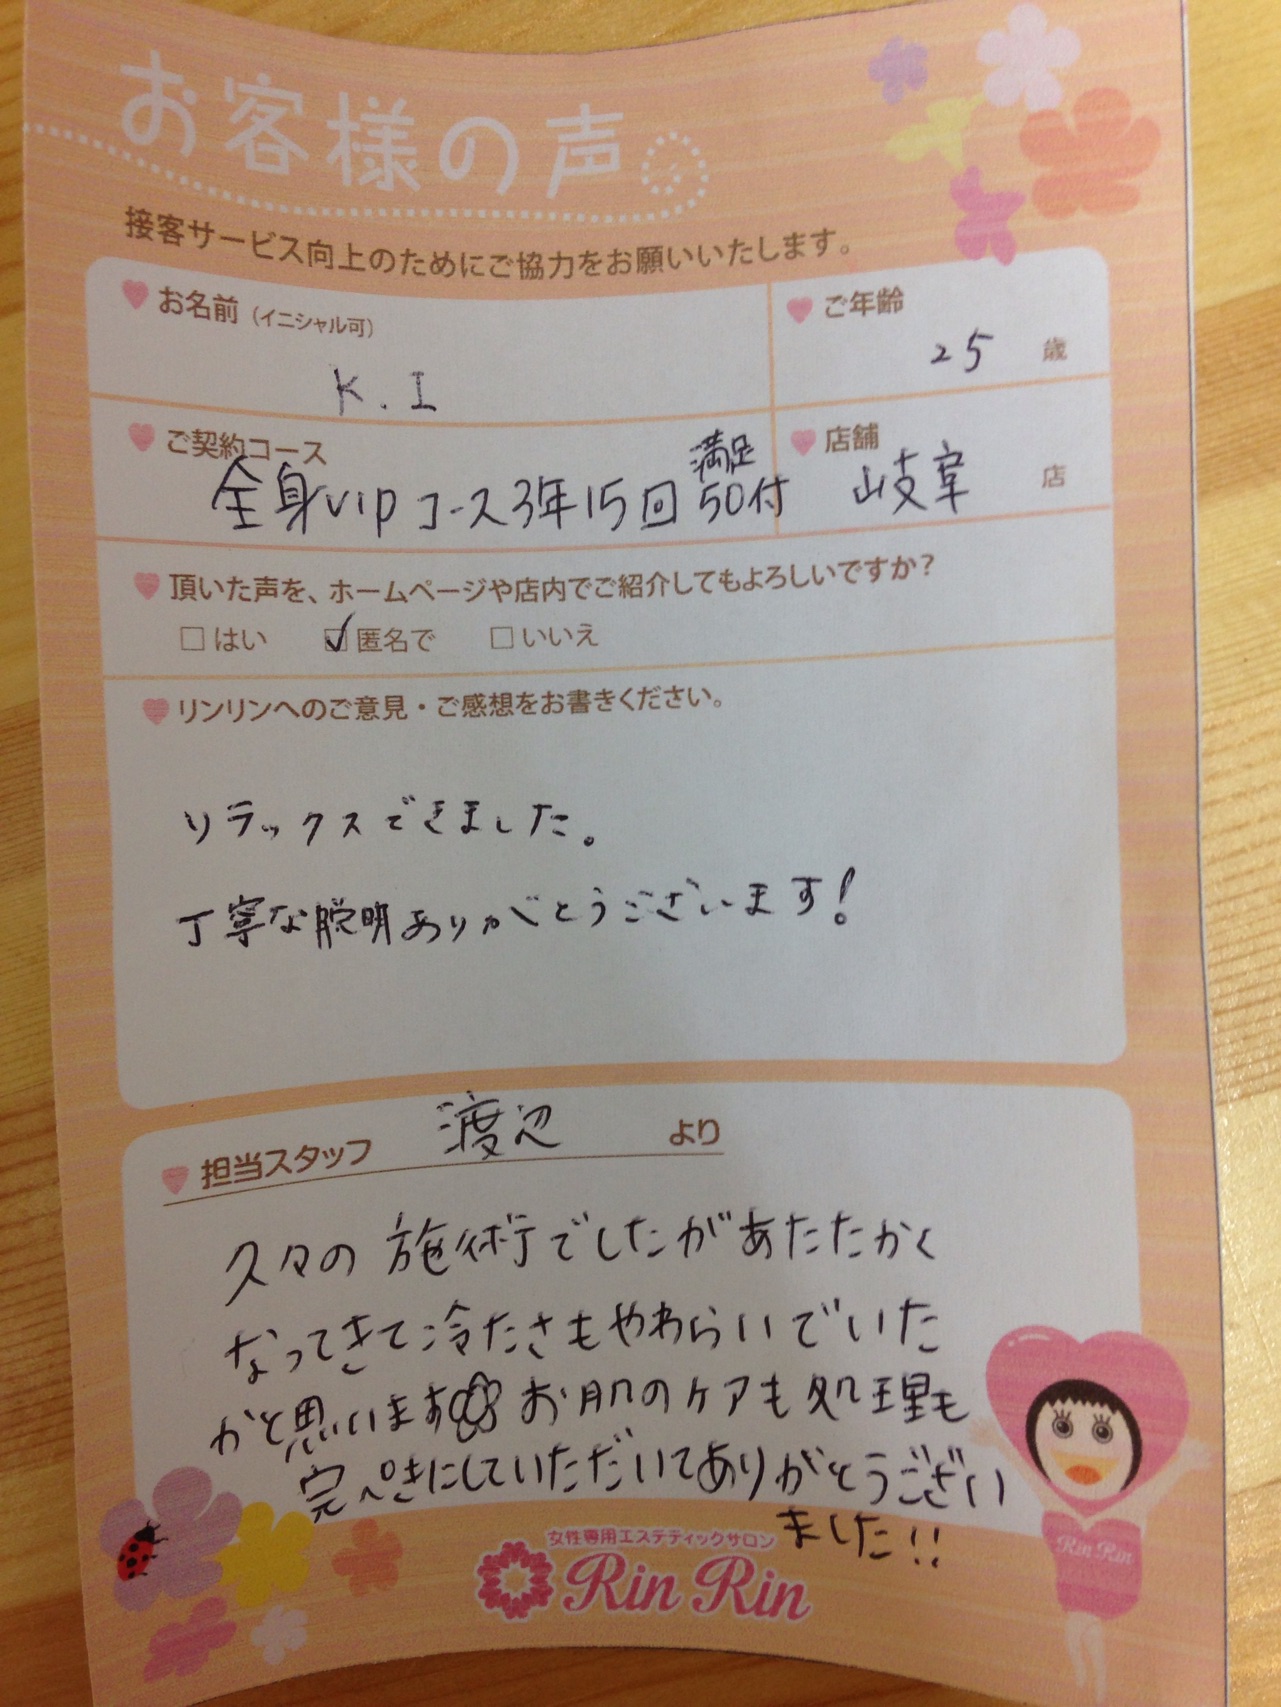 お客様の声
接客サービス向上のためにご協力をお願いいたします。
お名前（イニシャル可）
K.I
ご年齢
25 歳
ご契約コース
全身VIPコース3年15回 満足50付
店舗
岐阜 店
頂いた声を、ホームページや店内でご紹介してもよろしいですか？
はい ✓匿名で いいえ
リンリンへのご意見・ご感想をお書きください。
リラックスできました。
丁寧な説明ありがとうございます！
担当スタッフ 渡辺 より
久々の施術でしたがあたたかく
なってきて冷たさもやわらいでいた
かと思います お肌のケアも処理も
完ぺきにしていただいてありがとうござい
ました!!
女性専用エステティックサロン
Rin Rin
Rin Rin